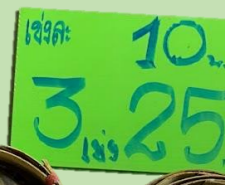 เข่งละ 10 บ.
3 เข่ง 25